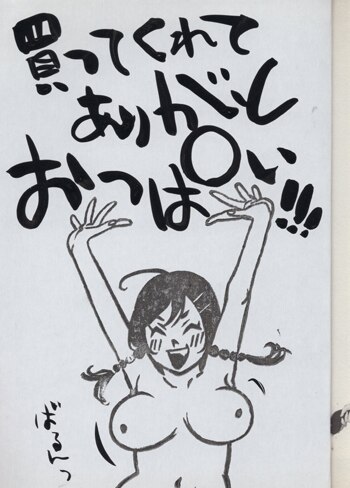 買ってくれて
ありがとし
おっぱ○い!!!
ばるんっ